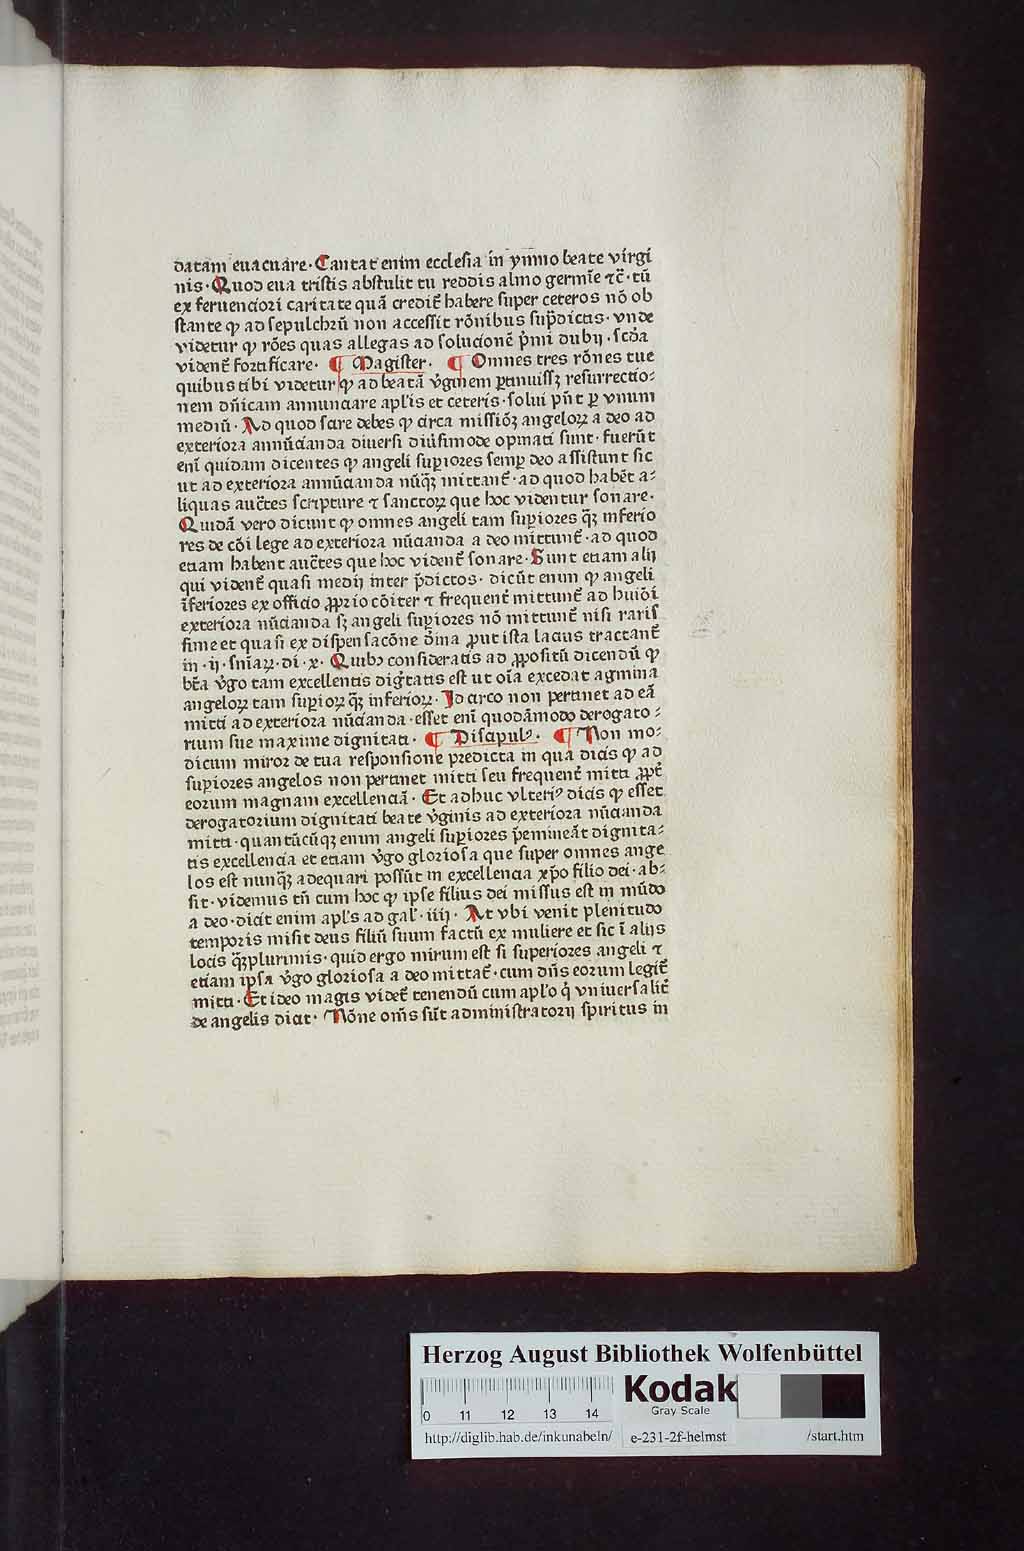 datam euacuare· Cantat enim ecclesia in ympno beate virgi
nis· Quod eua tristis abstulit tu reddis almo germīe ⁊c̄· tū
ex feruenciori caritate quā credit̄ habere super ceteros nō ob
stante ꝙ ad sepulchrū non accessit rōnibus sup̄dictis· vnde
videtur ꝙ rōes quas allegas ad solucionē p̄mi dubij · scd̄a
vident̄ fortificare· ¶ Magister· ¶ Omnes tres rōnes tue
quibus tibi videtur ꝙ ad beatā v̓ginem ꝑtinuissꝫ resurrectio⸗
nem dn̄icam annunciare apl̓is et ceteris· solui pn̄t ꝑ vnum
mediū· Ad quod scire debes ꝙ circa missiōꝫ angeloꝝ a deo ad
exteriora annūcianda diuersi diūsimode opinati sunt· fuerūt
enī quidam dicentes ꝙ angeli suꝑiores semꝑ deo assistunt sic
ut ad exteriora annūcianda nūqꝫ mittant̄· ad quod habēt a⸗
liquas auc̄tes scripture ⁊ sanctoꝝ que hoc videntur sonare·
Quidā vero dicunt ꝙ omnes angeli tam suꝑiores qꝫ inferio
res de cōi lege ad exteriora nūcianda a deo mittunt̄· ad quod
etiam habent auc̄tes que hoc vident̄ sonare· Sunt etiam alij
qui vident̄ quasi medij inter p̄dictos· dicūt enim ꝙ angeli
īferiores ex officio ꝓprio cōiter ⁊ frequent̄ mittunt̄ ad huiōi
exteriora nūcianda sꝫ angeli suꝑiores nō mittunt̄ nisi raris
sime et quasi ex dispensacōne diuina ꝓut ista lacius tractant̄
in· ij· sniaꝝ· di· x· Quibꝰ consideratis ad ꝓpositū dicendū ꝙ
bt̄a v̓go tam excellentis dig̓tatis est ut oīa excedat agmina
angeloꝝ tam suꝑioꝝ qꝫ inferioꝝ· Id circo non pertinet ad eā
mitti ad exteriora nūcianda· esset enī quodāmodo derogato⸗
rium sue maxime dignitati· ¶ Discipulꝰ· ¶ Non mo⸗
dicum miror de tua responsione predicta in qua dicis ꝙ ad
suꝑiores angelos non pertinet mitti seu frequent̄ mitti ꝓpt̄
eorum magnam excellenciā· Et adhuc vlteriꝰ dicis ꝙ esset
derogatorium dignitati beate v̓ginis ad exteriora nūcianda
mitti· quantūcūqꝫ enim angeli suꝑiores p̄emineāt dignita⸗
tis excellencia et etiam v̓go gloriosa que super omnes ange
los est nunqꝫ adequari possūt in excellencia xp̄o filio dei· ab⸗
sit· videmus tn̄ cum hoc ꝙ ipse filius dei missus est in mūdo
a deo· dicit enim apl̓s ad gal̓· iiij· At vbi venit plenitudo
temporis misit deus filiū suum factū ex muliere et sic ī alijs
locis qꝫplurimis· quid ergo mirum est si superiores angeli ⁊
etiam ipsa v̓go gloriosa a deo mittat̄· cum dn̄s eorum legit̄
mitti· Et ideo magis videt̄ tenendū cum apl̓o q̓ vniuersalit̄
de angelis dicit· Nōne om̄s sūt administratorij spiritus in
Herzog August Bibliothek Wolfenbüttel
0 11 12 13 14
Kodak
Gray Scale
http://diglib.hab.de/inkunabeln/ e-231-2f-helmst /start.htm